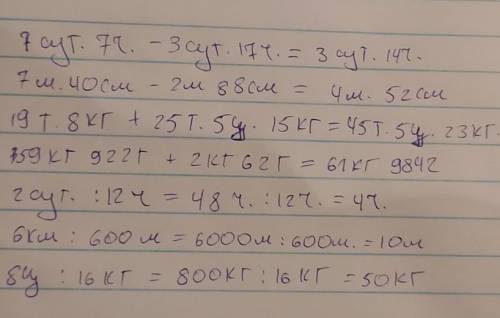 7 сут. 7ч. - 3 сут. 17ч. = 3 сут. 14ч.
7 м. 40см - 2м 88см = 4м. 52см
19 т. 8кг + 25 т. 5ц. 15кг = 45т. 5ц. 23кг.
59кг 922г + 2кг 62г = 61кг 984г
2 сут. : 12 ч = 48 ч. : 12ч. = 4ч.
6км : 600м = 6000м : 600м. = 10м
8ц : 16 кг = 800кг : 16 кг = 50кг